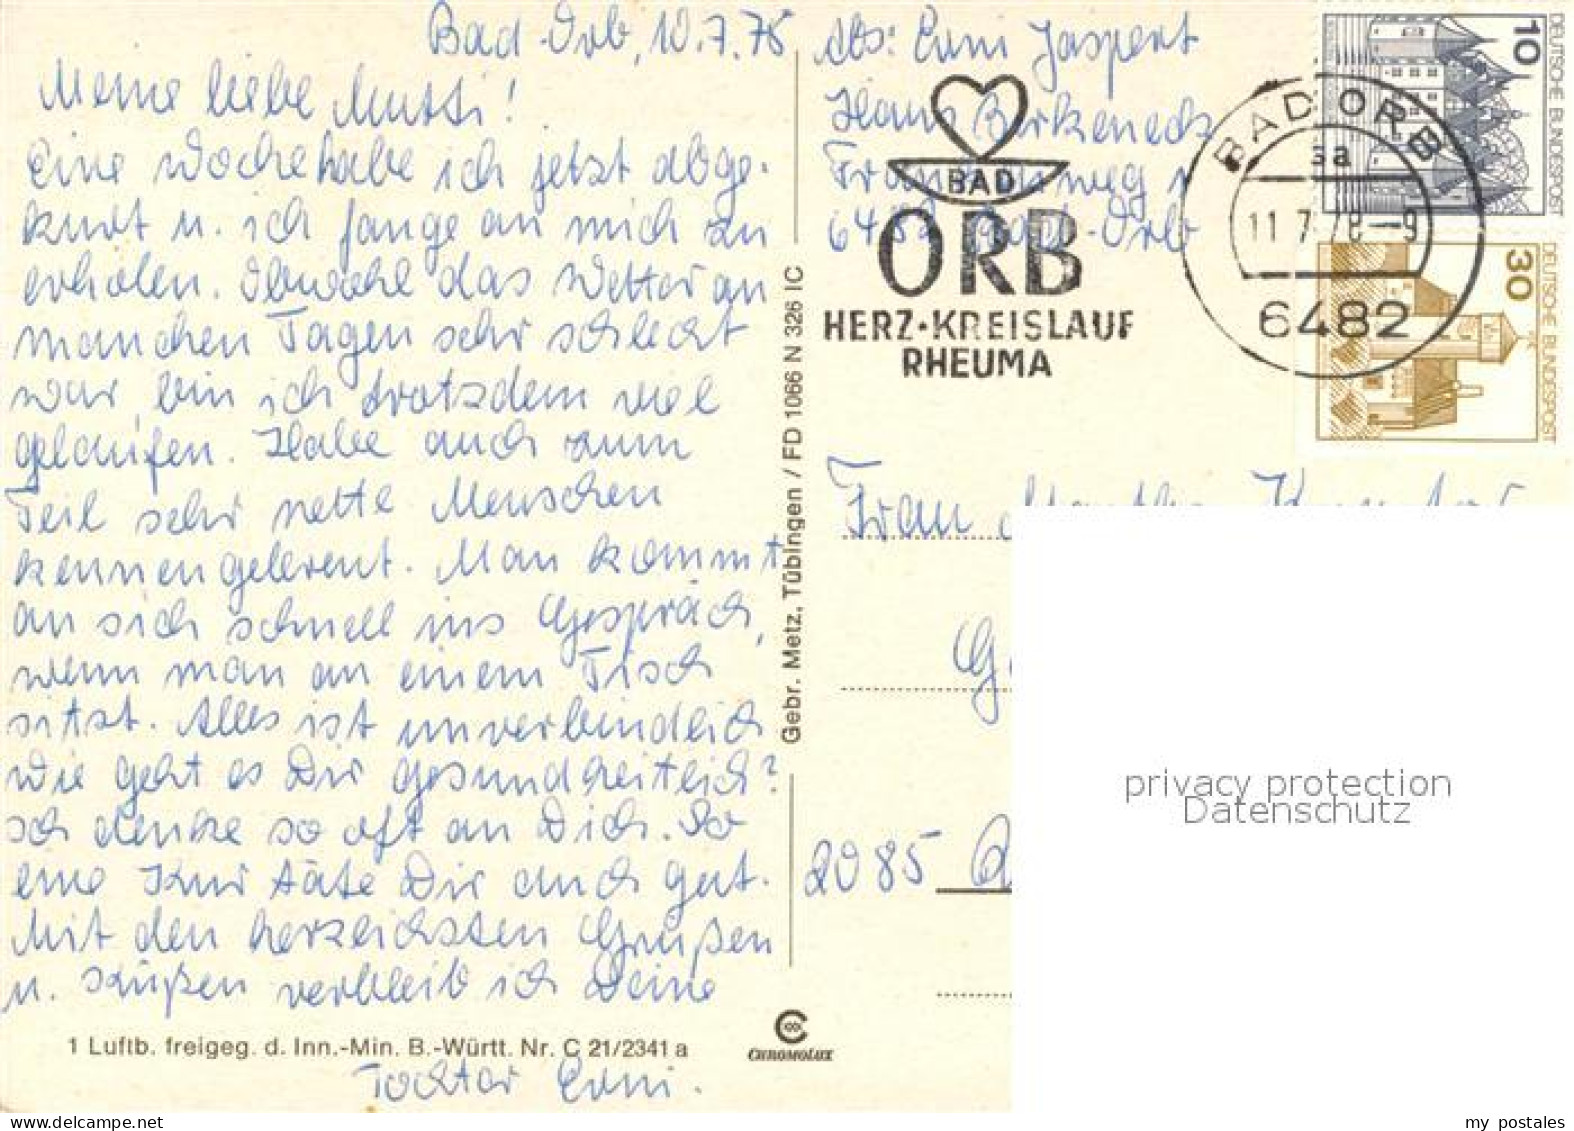 Bad-Orb, 10.7.78
Meine liebe Mutti!
Eine Woche habe ich jetzt abge-
kurt u. ich fange an mich zu
erholen. Obwohl das Wetter an
manchen Tagen sehr schlecht
war, bin ich trotzdem viel
gelaufen. Habe auch zum
Teil sehr nette Menschen
kennengelernt. Man kommt
an sich schnell ins Gespräch,
wenn man an einem Tisch
sitzt. Alles ist unverbindlich
Wie geht es Dir gesundheitlich?
Ich denke so oft an Dich. So
eine Kur täte Dir auch gut.
Mit den herzlichsten Grüßen
u. Küßen verbleib ich Deine
Tochter Erni.
1 Luftb. freigeg. d. Inn.-Min. B.-Württ. Nr. C 21/2341 a
Gebr. Metz, Tübingen / FD 1066 N 326 IC
CHROMOLUX
Abs: Erni Jaspert
Haus Birkeneck
6482 Bad-Orb
BAD
ORB
HERZ-KREISLAUF
RHEUMA
BAD ORB
sa
11.7.78-9
6482
10
DEUTSCHE BUNDESPOST
30
DEUTSCHE BUNDESPOST
Frau
2085
privacy protection
Datenschutz
my postales